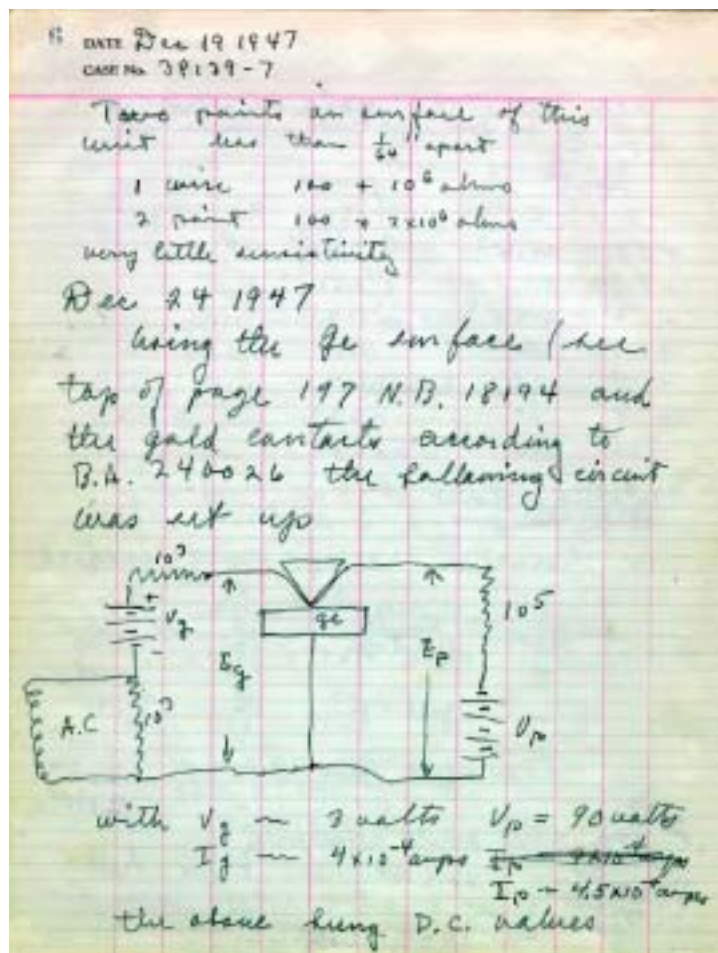 6 DATE Dec 19 1947
CASE No. 38139-7
Two points on surface of this
unit less than 1/64" apart
1 wire 100 + 10⁶ ohms
2 point 100 + 2x10⁶ ohms
very little sensitivity
Dec 24 1947
Using the ge surface (see
top of page 197 N.B. 18194 and
the gold contacts according to
B.A. 240026 the following circuit
was set up
10³
+
Vg
ge
10⁵
Eg
Ep
A.C
10³
Vp
with Vg ~ 3 volts Vp = 90 volts
Ig ~ 4x10⁻⁴ amps
Ip - 4.5x10⁻⁴ amps
the above being D.C. values